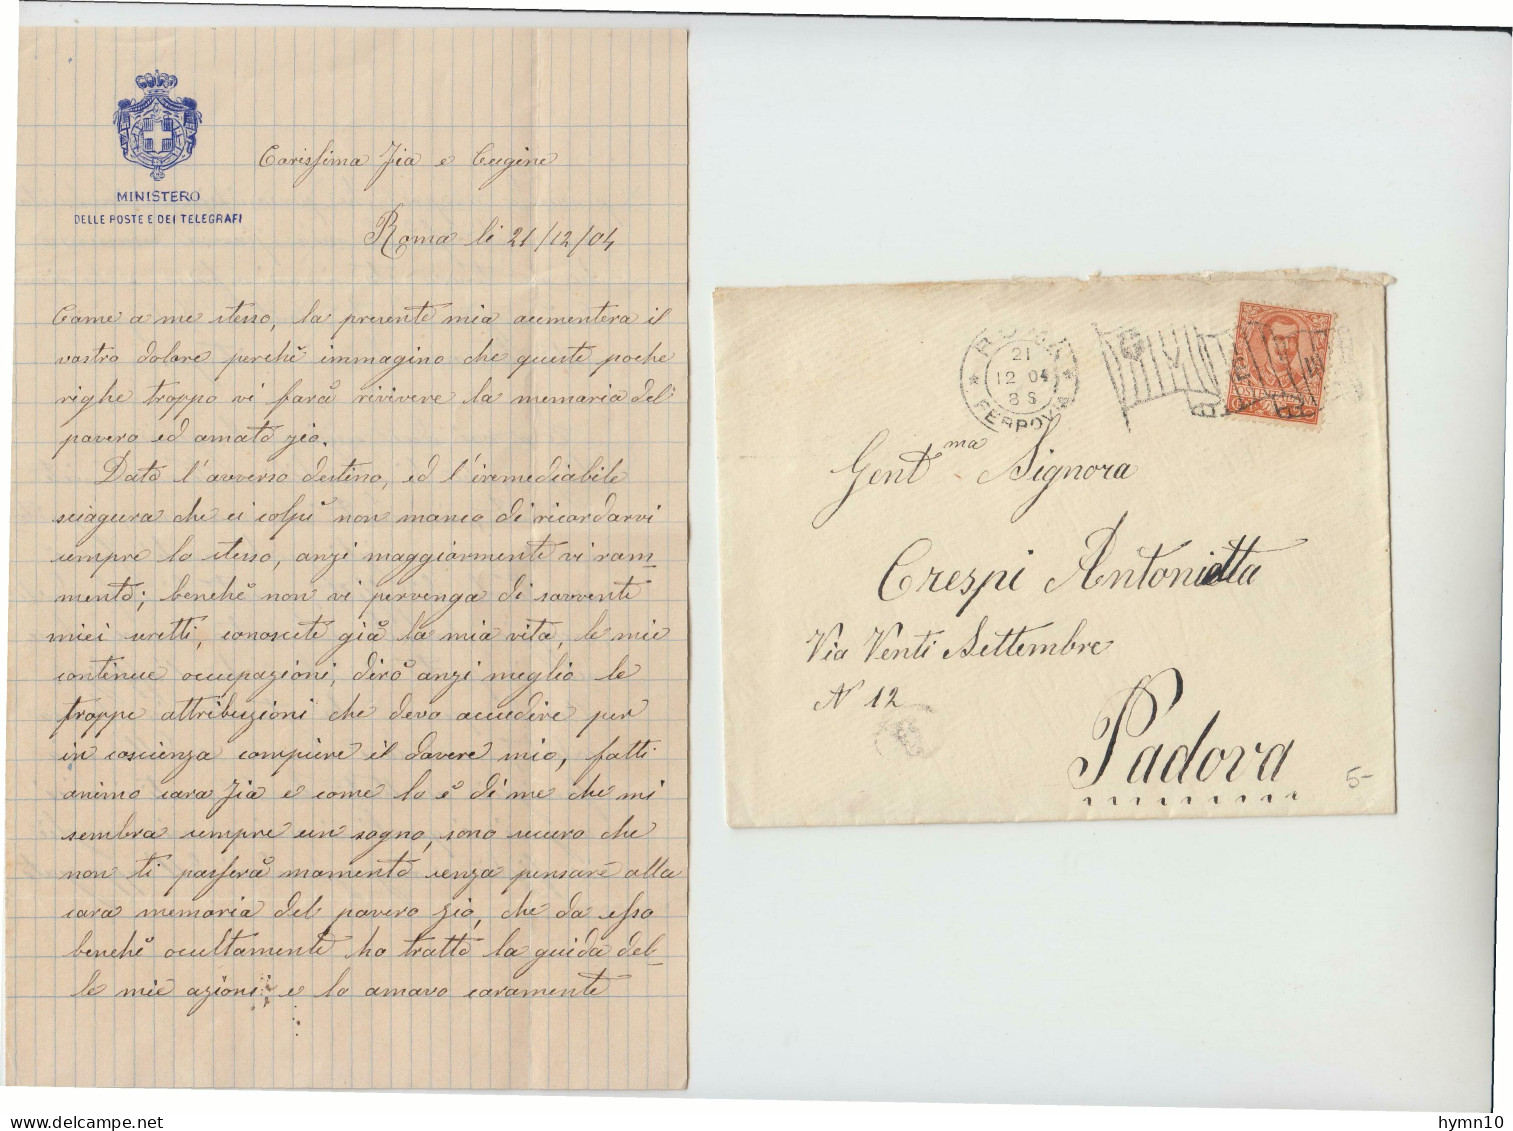 MINISTERO
DELLE POSTE E DEI TELEGRAFI
Carissima Zia e Cugine
Roma li 21/12/04
Come a me stesso, la presente mia aumenterà il
vostro dolore perchè immagino che queste poche
righe troppo vi farà rivivere la memoria del
povero ed amato zio.
Dato l'avverso destino, ed l'iremediabile
sciagura che ci colpì non manco di ricordarvi
sempre lo stesso, anzi maggiormente vi ram-
mento; benchè non vi pervenga di sovvente
miei scretti, conoscete già la mia vita, le mie
continue occupazioni, dirò anzi meglio le
troppe attribuzioni che devo accudire per
in coscienza compiere il dovere mio, fatti
animo cara Zia e come lo è di me che mi
sembra sempre un sogno, sono sicuro che
non ti passerà momento senza pensare alla
cara memoria del povero zio, che da esso
benchè ocultamente ho tratto la guida del-
le mie azioni e lo amavo caramente
ROMA
21
12 04
8 S
FERROVIA
Gent.ma Signora
Crespi Antonietta
Via Venti Settembre
N 12
Padova
5-
hymn10